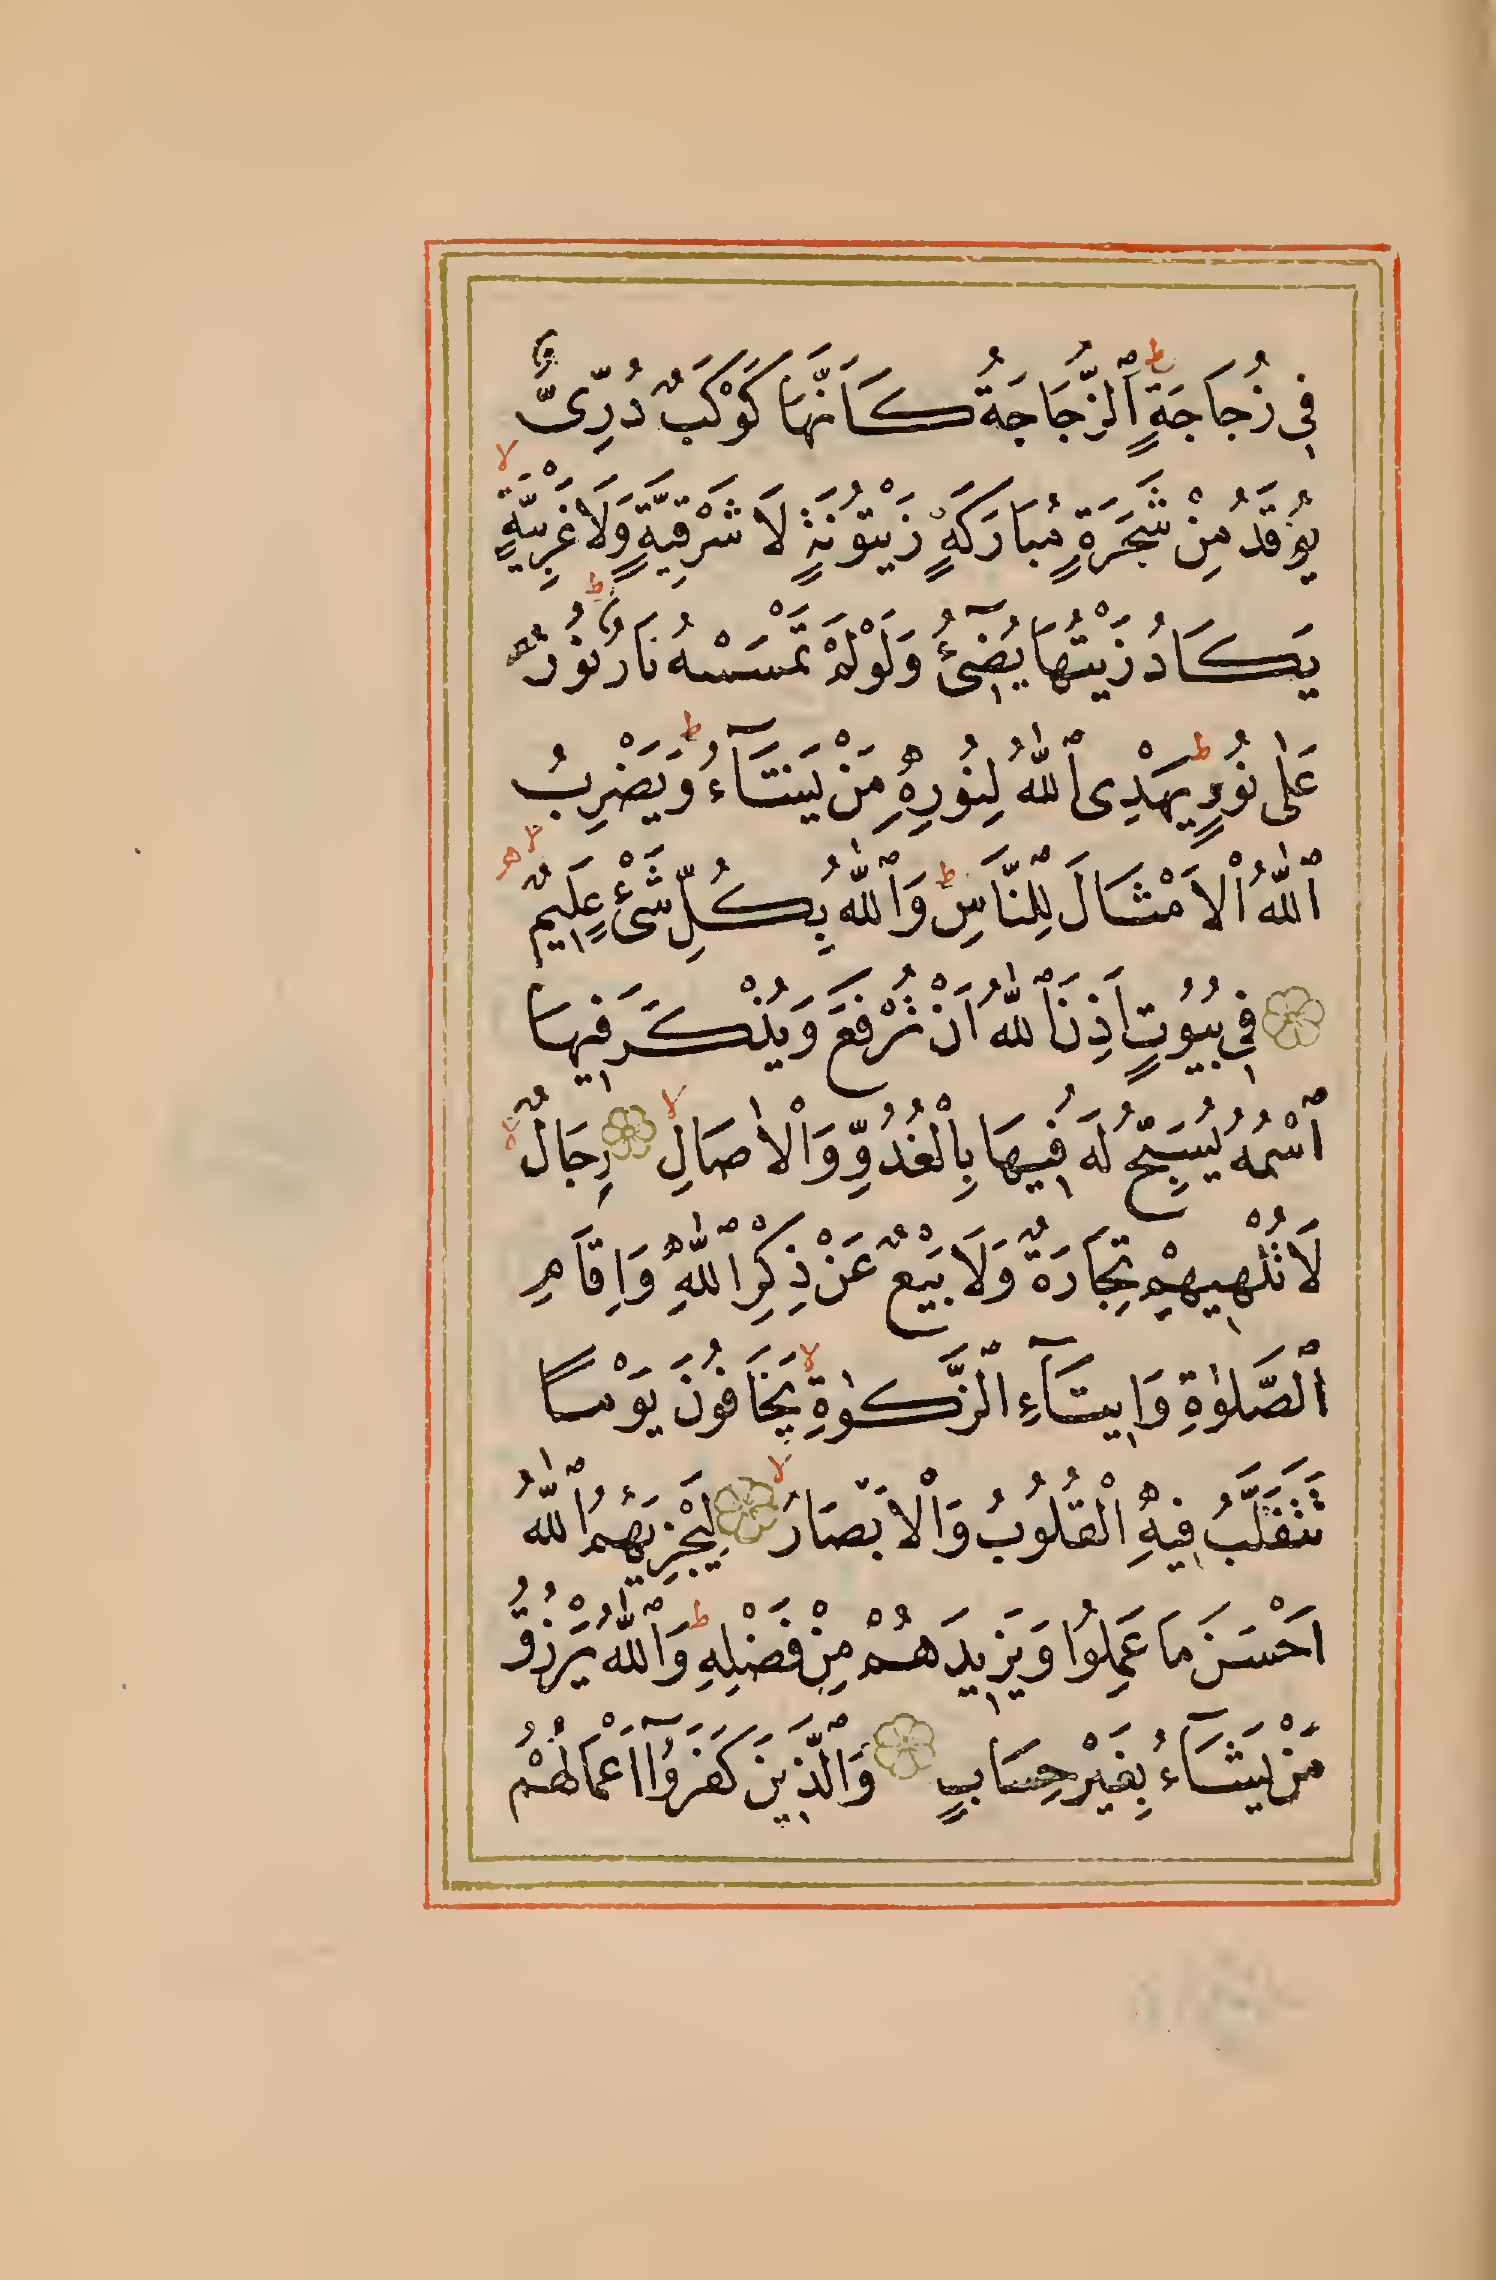 فِي زُجَاجَةٍ ؕ اَلزُّجَاجَةُ كَاَنَّهَا كَوْكَبٌ دُرِّىٌّ
يُوْقَدُ مِنْ شَجَرَةٍ مُبَارَكَةٍ زَيْتُوْنَةٍ لَا شَرْقِيَّةٍ وَلَا غَرْبِيَّةٍ ۙ
يَكَادُ زَيْتُهَا يُضِىۤءُ وَلَوْ لَمْ تَمْسَسْهُ نَارٌ ؕ نُوْرٌ
عَلٰى نُوْرٍ ؕ يَهْدِى ٱللّٰهُ لِنُوْرِهٖ مَنْ يَشَآءُ ؕ وَيَضْرِبُ
ٱللّٰهُ الْاَمْثَالَ لِلنَّاسِ ؕ وَٱللّٰهُ بِكُلِّ شَىْءٍ عَلِيمٌ
فِي بُيُوْتٍ اَذِنَ ٱللّٰهُ اَنْ تُرْفَعَ وَيُذْكَرَ فِيهَا
ٱسْمُهُ يُسَبِّحُ لَهُ فِيهَا بِالْغُدُوِّ وَالْاٰصَالِ ۙ رِجَالٌ
لَا تُلْهِيهِمْ تِجَارَةٌ وَلَا بَيْعٌ عَنْ ذِكْرِ ٱللّٰهِ وَاِقَامِ
ٱلصَّلٰوةِ وَاِيتَآءِ ٱلزَّكٰوةِ ۙ يَخَافُوْنَ يَوْمًا
تَتَقَلَّبُ فِيهِ الْقُلُوبُ وَالْاَبْصَارُ ۙ لِيَجْزِيَهُمُ ٱللّٰهُ
اَحْسَنَ مَا عَمِلُوْا وَيَزِيدَهُمْ مِنْ فَضْلِهِ ؕ وَٱللّٰهُ يَرْزُقُ
مَنْ يَشَآءُ بِغَيْرِ حِسَابٍ وَٱلَّذِينَ كَفَرُوْۤا اَعْمَالُهُمْ